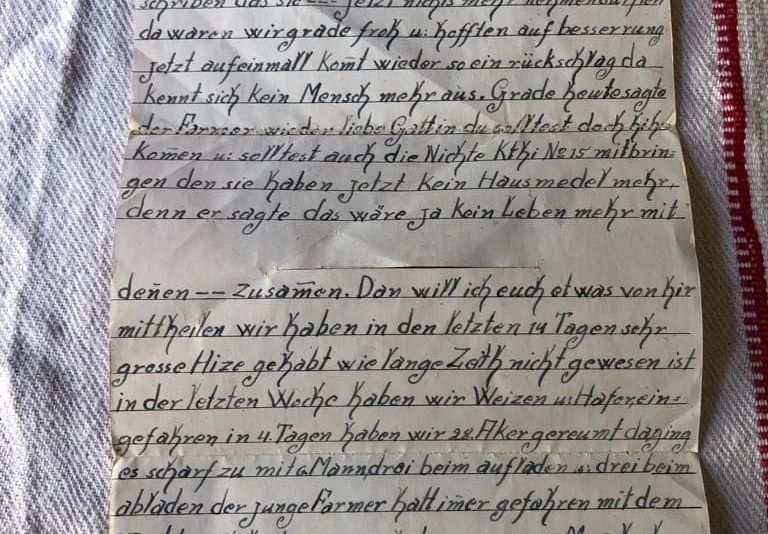 schriben das sie --- jetzt nichts mehr nehmen dürfen
da waren wir grade froh u: hofften auf besserrung
jetzt aufeinmall kom̄t wieder so ein rückschlag da
kennt sich kein Mensch mehr aus. Grade heute sagte
der Farmer wieder liebe Gattin du solltest doch hih-
kom̄en u: solltest auch die Nichte Kthi No 15 mitbrin=
gen den sie haben jetzt kein Hausmedel mehr,
denn er sagte das wäre ja kein Leben mehr mit
deñen -- zusam̄en. Dan will ich euch etwas von hir
mittheilen wir haben in den letzten 14 Tagen sehr
grosse Hize gehabt wie lange Zeith nicht gewesen ist
in der letzten Woche haben wir Weizen u: Hafer, ein=
gefahren in 4. Tagen haben wir 28. Aker gereumt da ging
es scharf zu mit 6 Mann, drei beim aufladen u: drei beim
abladen der junge Farmer hatt im̄er gefahren mit dem